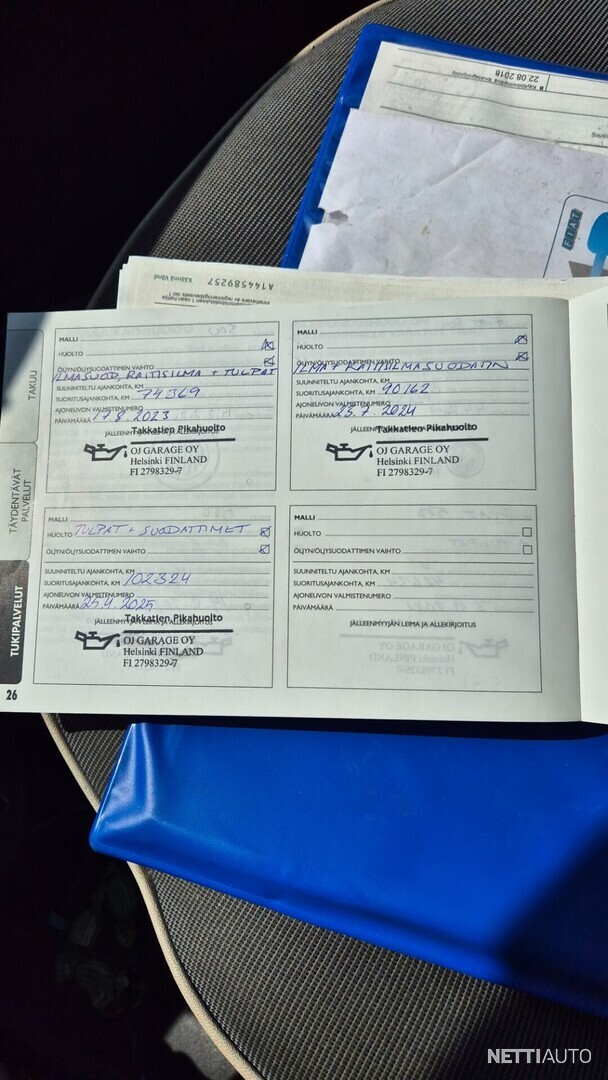 22.08.2018
FIAT
Käännä Vänd
A144589257
TAKUU
TÄYDENTÄVÄT PALVELUT
TUKIPALVELUT
26
MALLI
HUOLTO
ÖLJYN/ÖLJYSUODATTIMEN VAIHTO
ILMASUOD, RAITISILMA + TULPAT
SUUNNITELTU AJANKOHTA, KM
SUORITUSAJANKOHTA, KM 74369
AJONEUVON VALMISTENUMERO
PÄIVÄMÄÄRÄ 17.8.2023
JÄLLEENMYYJÄN LEIMA JA ALLEKIRJOITUS
Takkatien Pikahuolto
OJ GARAGE OY
Helsinki FINLAND
FI 2798329-7
MALLI
HUOLTO
ÖLJYN/ÖLJYSUODATTIMEN VAIHTO
ILMA + RAITISILMASUODATIN
SUUNNITELTU AJANKOHTA, KM
SUORITUSAJANKOHTA, KM 90162
AJONEUVON VALMISTENUMERO
PÄIVÄMÄÄRÄ 23.7.2024
JÄLLEENMYYJÄN LEIMA JA ALLEKIRJOITUS
Takkatien Pikahuolto
OJ GARAGE OY
Helsinki FINLAND
FI 2798329-7
MALLI
HUOLTO TULPAT + SUODATTIMET
ÖLJYN/ÖLJYSUODATTIMEN VAIHTO
SUUNNITELTU AJANKOHTA, KM
SUORITUSAJANKOHTA, KM 102324
AJONEUVON VALMISTENUMERO
PÄIVÄMÄÄRÄ 25.4.2025
JÄLLEENMYYJÄN LEIMA JA ALLEKIRJOITUS
Takkatien Pikahuolto
OJ GARAGE OY
Helsinki FINLAND
FI 2798329-7
MALLI
HUOLTO
ÖLJYN/ÖLJYSUODATTIMEN VAIHTO
SUUNNITELTU AJANKOHTA, KM
SUORITUSAJANKOHTA, KM
AJONEUVON VALMISTENUMERO
PÄIVÄMÄÄRÄ
JÄLLEENMYYJÄN LEIMA JA ALLEKIRJOITUS
NETTIAUTO